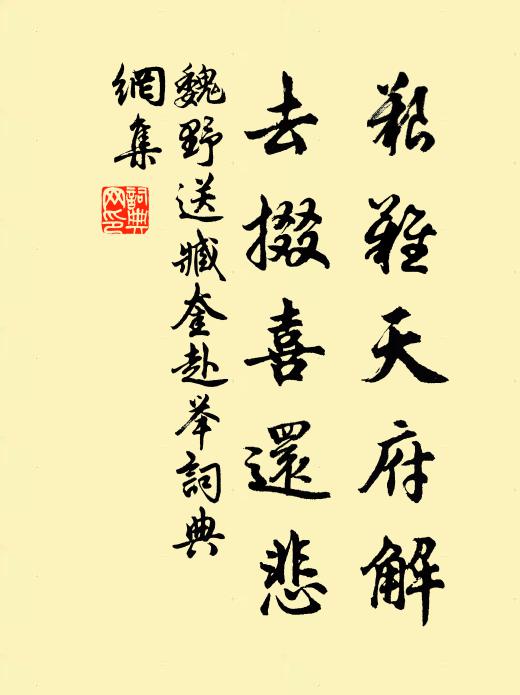 艰難天府解
去掇喜還悲
魏野送臧奎赴举詞典
網集
詞典
网印